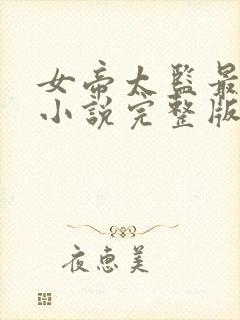 女帝太監最
小說完整版
夜惠美